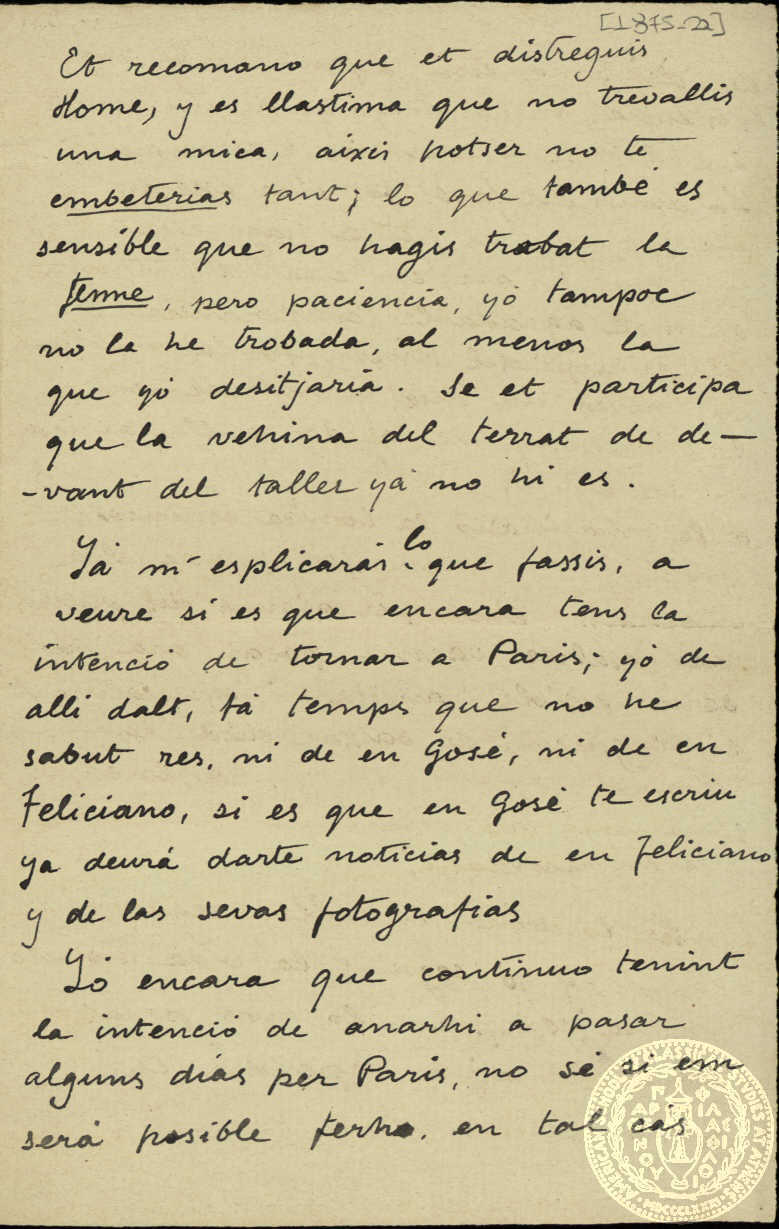 [1875-22]
Et recomano que et distreguis
Home, y es llastima que no trevallis
una mica, aixis potser no te
embeterias tant; lo que també es
sensible que no hagis trobat la
femme, pero paciencia, yó tampoc
no la he trobada, al menos la
que yó desitjaria. Se et participa
que la vehina del terrat de de-
-vant del taller yá no hi es.
Yá m' esplicarás lo que fassis, a
veure si es que encara tens la
intenció de tornar a Paris; yó de
alli dalt, fá temps que no he
sabut res, ni de en Gosé, ni de en
Feliciano, si es que en Gosé te escriu
ya deurá darte noticias de en Feliciano
y de las sevas fotografias
Yó encara que continuo tenint
la intenció de anarhi a pasar
alguns dias per Paris, no sé si em
será posible ferho. en tal cás
AMERICAN SCHOOL OF CLASSICAL STUDIES AT ATHENS
MDCCCLXXXI